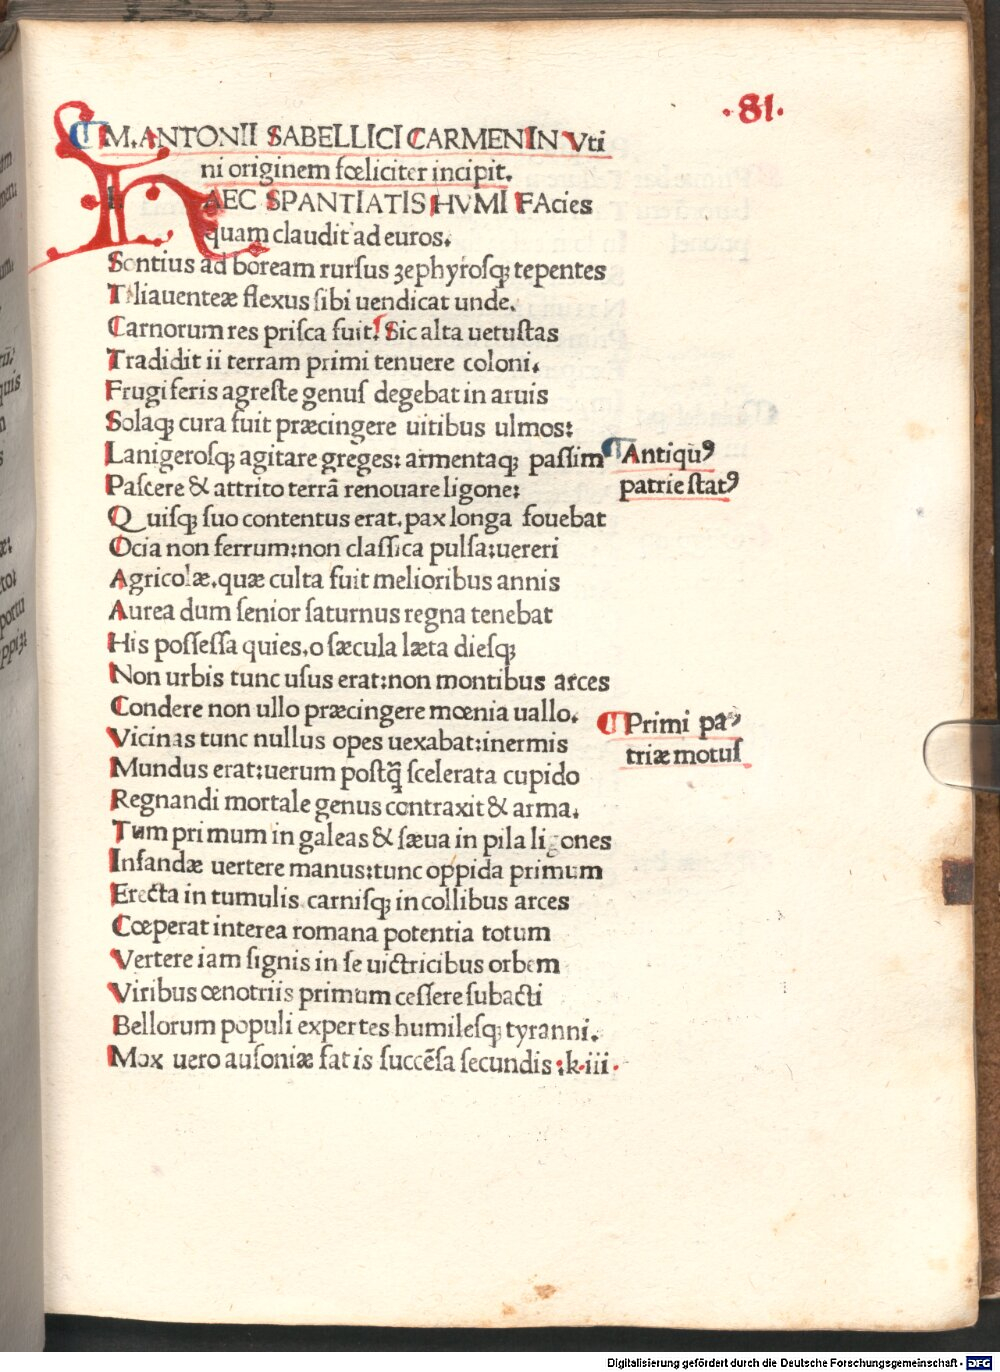 ·81·
¶ M. ANTONII SABELLICI CARMEN IN Vti
ni originem fœliciter incipit.
HAEC SPANTIATIS HVMI FAcies
quam claudit ad euros.
Sontius ad boream rurſus ʒephyroſqꝫ tepentes
Tiliauenteæ flexus ſibi uendicat undę.
Carnorum res priſca fuit: Sic alta uetuſtas
Tradidit ii terram primi tenuere coloni.
Frugiferis agreſte genuſ degebat in aruis
Solaqꝫ cura fuit præcingere uitibus ulmos:
Lanigeroſqꝫ agitare greges: armentaqꝫ paſſim
Paſcere & attrito terrā renouare ligone:
Quiſqꝫ ſuo contentus erat. pax longa fouebat
Ocia non ferrum: non claſſica pulſa: uereri
Agricolæ. quæ culta fuit melioribus annis
Aurea dum ſenior ſaturnus regna tenebat
His poſſeſſa quies. o ſæcula læta dieſqꝫ
Non urbis tunc uſus erat: non montibus arces
Condere non ullo præcingere mœnia uallo.
Vicinas tunc nullus opes uexabat: inermis
Mundus erat: uerum poſtq̄ ſcelerata cupido
Regnandi mortale genus contraxit & arma.
Tum primum in galeas & ſæua in pila ligones
Infandæ uertere manus: tunc oppida primum
Erecta in tumulis carniſqꝫ in collibus arces
Cœperat interea romana potentia totum
Vertere iam ſignis in ſe uictricibus orbem
Viribus œnotriis primum ceſſere ſubacti
Bellorum populi expertes humileſqꝫ tyranni.
Mox uero auſoniæ fatis ſuccēſa ſecundis : k·iii·
¶ Antiquꝰ
patrie ſtatꝰ
¶ Primi pa
triæ motuſ
Digitalisierung gefördert durch die Deutsche Forschungsgemeinschaft - DFG